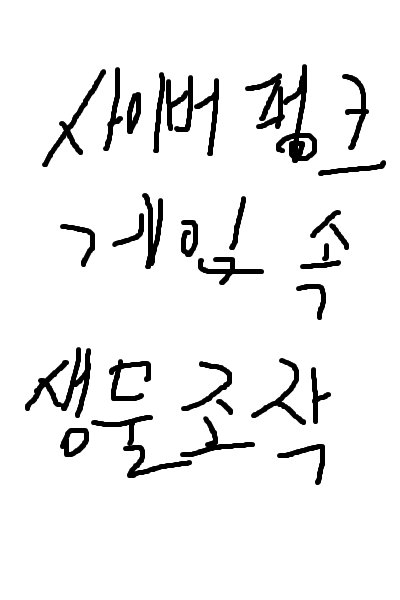 사이버 펑크
게임 속
생물조작